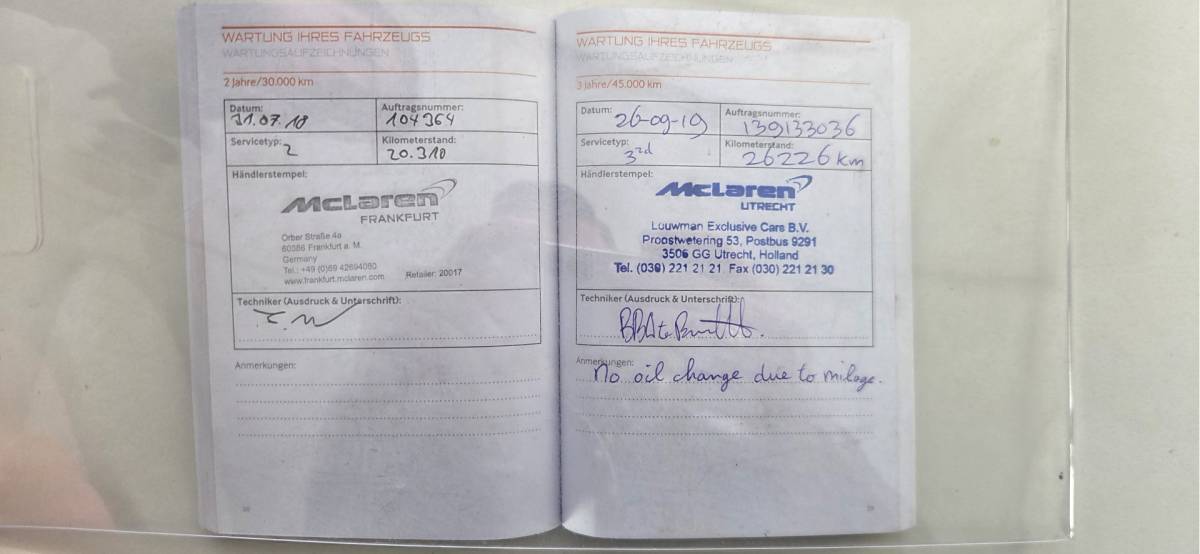 WARTUNG IHRES FAHRZEUGS
WARTUNGSAUFZEICHNUNGEN
2 Jahre/30.000 km
Datum:
31.07.18
Auftragsnummer:
104364
Servicetyp:
2
Kilometerstand:
20.310
Händlerstempel:
McLaren
FRANKFURT
Orber Straße 4a
60386 Frankfurt a. M.
Germany
Tel.: +49 (0)69 42694080
www.frankfurt.mclaren.com Retailer: 20017
Techniker (Ausdruck & Unterschrift):
Anmerkungen:
WARTUNG IHRES FAHRZEUGS
WARTUNGSAUFZEICHNUNGEN
3 Jahre/45.000 km
Datum:
26-09-19
Auftragsnummer:
139133036
Servicetyp:
3rd
Kilometerstand:
26226 km
Händlerstempel:
McLaren
UTRECHT
Louwman Exclusive Cars B.V.
Proostwetering 53, Postbus 9291
3506 GG Utrecht, Holland
Tel. (030) 221 21 21 Fax (030) 221 21 30
Techniker (Ausdruck & Unterschrift):
Anmerkungen:
No oil change due to milage.